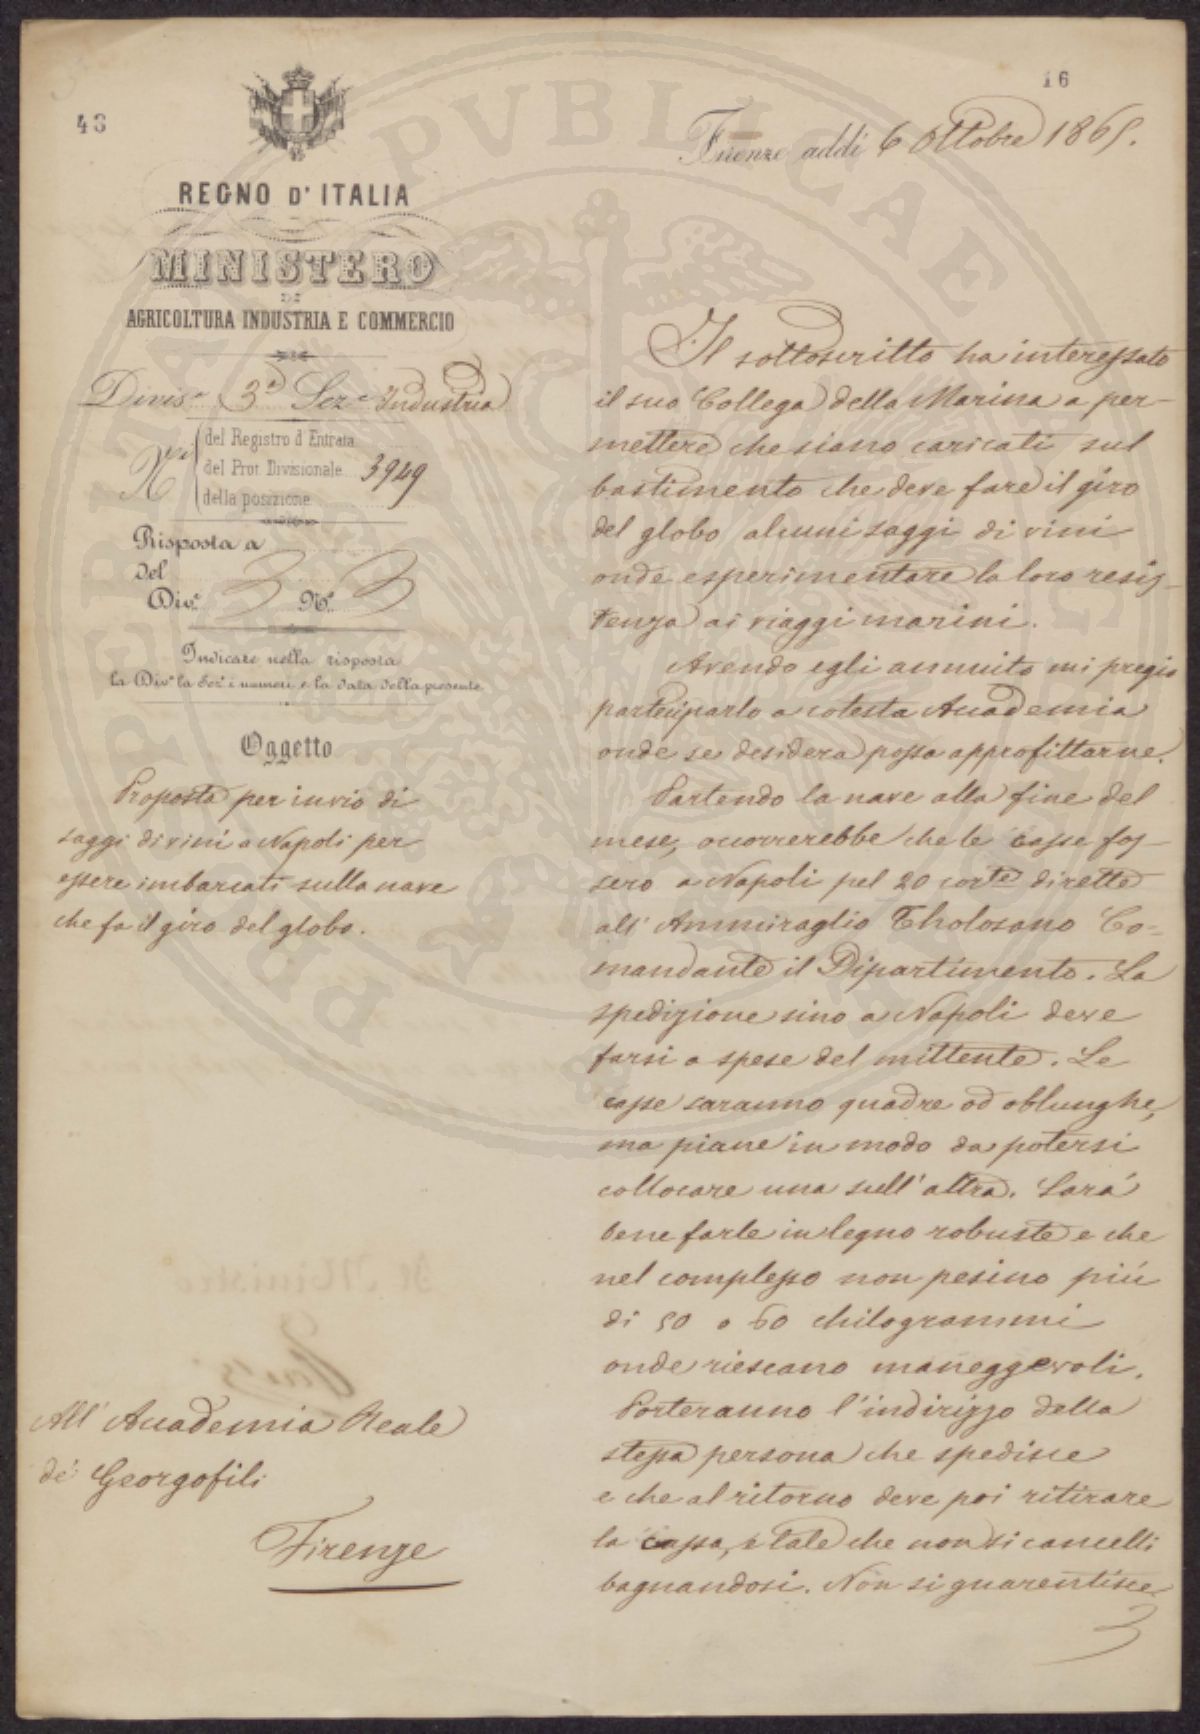 43
16
Firenze addì 6 Ottobre 1865.
REGNO D' ITALIA
MINISTERO
DI
AGRICOLTURA INDUSTRIA E COMMERCIO
Divis.e 3a Sez.e Industria
N.ri
del Registro d Entrata
del Prot. Divisionale 3949
della posizione
Risposta a
del
Div.e N.o
Indicare nella risposta
la Div.e la Sez.e i numeri e la data della presente
Oggetto
Proposta per invio di
saggi di vini a Napoli per
essere imbarcati sulla nave
che fa il giro del globo.
All' Accademia Reale
de' Georgofili
Firenze
Il sottoscritto ha interessato
il suo Collega della Marina a per-
mettere che siano caricati sul
bastimento che deve fare il giro
del globo alcuni saggi di vini
onde esperimentare la loro resis-
tenza ai viaggi marini.
Avendo egli annuito mi pregio
parteciparlo a cotesta Accademia
onde se desidera possa approfittarne.
Partendo la nave alla fine del
mese, occorrerebbe che le casse fos-
sero a Napoli pel 20 corte dirette
all' Ammiraglio Tholosano Co-
mandante il Dipartimento. La
spedizione sino a Napoli deve
farsi a spese del mittente. Le
casse saranno quadre od oblunghe,
ma piane in modo da potersi
collocare una sull' altra. Sarà
bene farle in legno robuste e che
nel complesso non pesino più
di 50 o 60 chilogrammi
onde riescano maneggevoli.
Porteranno l'indirizzo della
stessa persona che spedisce
e che al ritorno deve poi ritirare
la cassa, e tale che non si cancelli
bagnandosi. Non si guarentisce
PVBLICAE